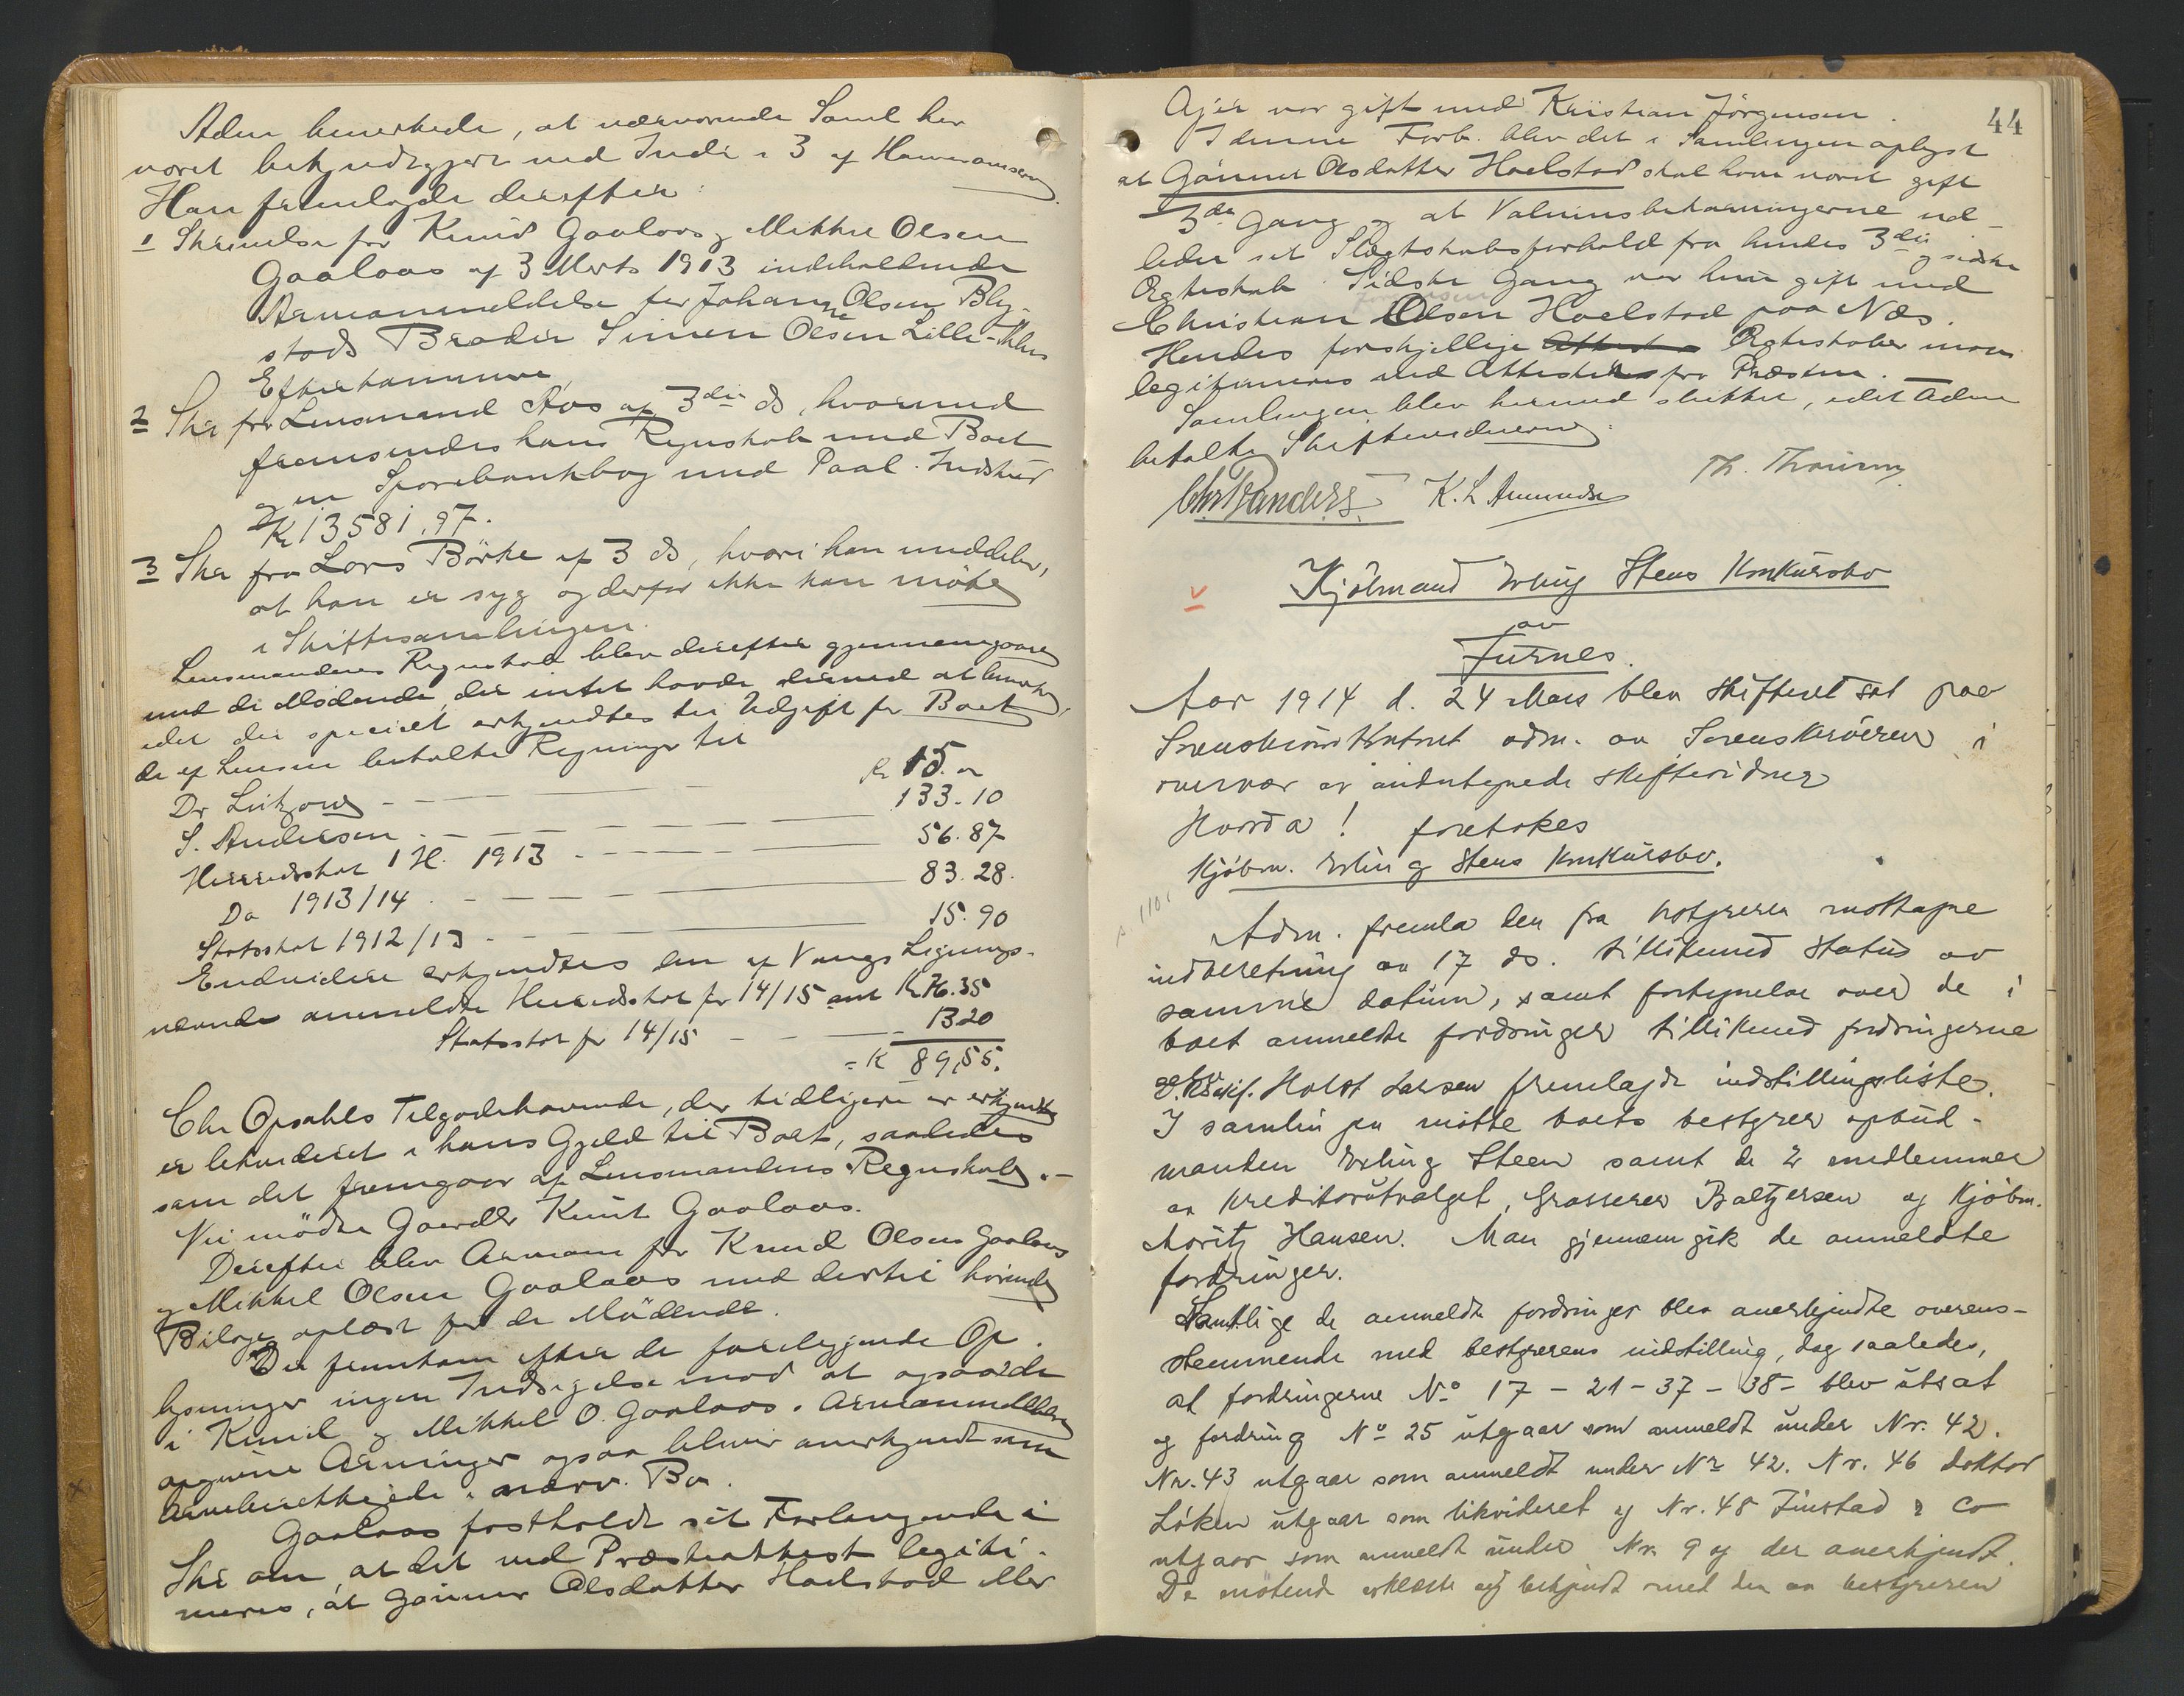 Adm bemerkede, at nærværende Saml har
været bekjendtgjort ved Inds i 3 af Hamaraviserne.
Han fremlagde derefter:
1 Skrivelse fra Knud Gaalaas og Mikkel Olsen
Gaalaas af 3 Marts 1913 indeholdende
Arveanmeldelse for Johanne Olsen Bly-
stads Broder Simen Olsen Lille-
Efterkommere,
2 Skr fra Lensmand Aas af 3die ds, hvormed
fremsendes hans Regnskab med Boet
og en Sparebankbog med Paal. Indskud
Kr 13581,97.
3 Skr fra Lars Börke af 3 ds, hvori han meddeler,
at han er syg og derfor ikke kan möde
i Skiftesamlingen.
Lensmandens Regnskab blev derefter gjennemgaaet
med de Mödende, der intet havde dermed at bemærke,
idet der specielt erkjendtes til Udgift for Boet
de af Lensm betalte Regninger til
Dr Lützow - — — Kr 15. "
S. Andersen . - — — — 133.10
Herredsskat 1 H. 1913 - — — — 56.87
Do 1913/14 . - — — — 83.28.
Statsskat 1912/13 - — — 15.90
Endvidere erkjendtes den af Vangs Lignings-
nævnde anmeldte Herredsskat for 14/15 med Kr 76.35
Statsskat for 14/15 - - — 13.20
= K 89,55.
Chr Opsahls Tilgodehavende, der tidligere er erkjendt
er likvideret i hans Gjæld til Boet, saaledes
som det fremgaar af Lensmandens Regnskab. -
Nu mödte Gaardbr Knut Gaalaas.
Derefter blev Arveanm for Knud Olsen Gaalaas
og Mikkel Olsen Gaalaas med dertil hörende
Bilage oplæst for de Mödende.
Der fremkom efter de foreliggende Op-
lysninger ingen Indsigelse mod at ogsaa de
i Knud og Mikkel O. Gaalaas's Arveanmeldelse
opgivne Arvinger ogsaa bliver anerkjendt som
Arveberettigede i nærv. Bo.
Gaalaas fastholdt sit Forlangende i
Skr om, at det ved Præsteattest legiti-
meres, at Gönner Olsdatter Hoelstad eller
44
Ajer var gift med Kristian Jörgensen.
I denne Forb. blev det i Samlingen oplyst
at Gönner Olsdatter Hoelstad skal have været gift
3de Gang og at ud-
leder sit Slægtskabsforhold fra hendes 3die og sidste
Ægteskab. Sidste Gang var hun gift med
Christian Olsen Hoelstad paa Næs.
Hendes forskjellige Ægteskaber maa
legitimeres ved Attester fra Præsten.
Samlingen blev hermed sluttet, idet Adm
betalte Skiftevidnerne.
Chr Randers K. L. Amundsen Th.
v Kjöbmand Erling Steens Konkursbo
av
Furnes.
Aar 1914 d. 24 Mars blev skifteret sat paa
Sorenskriverkontoret adm. av Sorenskriveren i
overvær av undertegnede skiftevidner
Hvorda! foretokes
Kjöbm. Erling Steens Konkursbo.
Adm. fremla den fra bestyreren mottagne
indberetning av 17 ds. tillikemed status av
samme datum, samt fortegnelse over de i
boet anmeldte fordringer tillikemed fordringerne
Holst Larsen fremlagde indstillingsliste.
I samlingen mötte boets bestyrer opbud-
manden Erling Steen samt de 2 medlemmer
av kreditorutvalget, Grosserer Baltzersen og Kjöbm.
Moritz Hansen. Man gjennemgik de anmeldte
fordringer.
Samtlige de anmeldte fordringer blev anerkjendte overens-
stemmende med bestyrerens indstilling, dog saaledes,
at fordringerne No 17 - 21 - 37 - 38 - blev utsat
og fordring No 25 utgaar som anmeldt under Nr. 42.
Nr. 43 utgaar som anmeldt under Nr 42. Nr. 46 Doktor
Löken utgaar som likvideret og Nr. 48 Finstad & Co
utgaar som anmeldt under Nr. 9 og der anerkjendt.
De mötende erklærte sig bekjendt med den av bestyreren